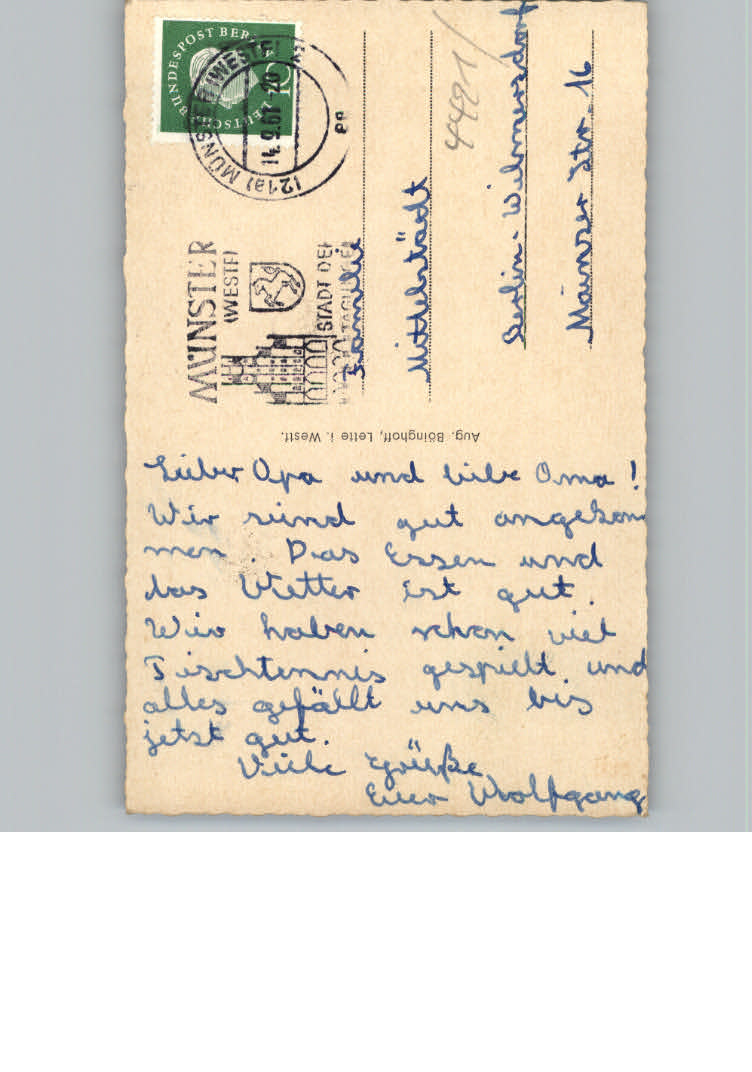 Lieber Opa und liebe Oma!
Wir sind gut angekom
men. Das Essen und
das Wetter ist gut.
Wir haben schon viel
Tischtennis gespielt und
alles gefällt uns bis
jetzt gut.
Viele Grüße
Euer Wolfgang
Aug. Böinghoff, Lette i. Westf.
MÜNSTER
(WESTF)
STADT DER
TAGUNGEN
(21a) MÜNSTER (WESTF)
14.9.61-20
pp
DEUTSCHE BUNDESPOST BERLIN
10
4421/
Familie
Mittelstädt
Berlin-Wilmersdorf
Mainzer Str. 16